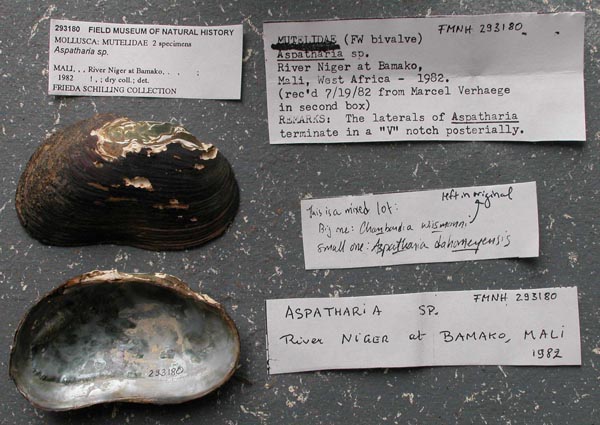 293180 FIELD MUSEUM OF NATURAL HISTORY
MOLLUSCA: MUTELIDAE 2 specimens
Aspatharia sp.
MALI, , , River Niger at Bamako, . . ;
1982 !, ; dry coll.; det.
FRIEDA SCHILLING COLLECTION
FMNH 293180
MUTELIDAE (FW bivalve)
Aspatharia sp.
River Niger at Bamako,
Mali, West Africa - 1982.
(rec'd 7/19/82 from Marcel Verhaege
in second box)
REMARKS: The laterals of Aspatharia
terminate in a "V" notch posterially.
left in original
This is a mixed lot:
Big one: Chambardia wismanni
Small one: Aspatharia dahomeyensis
FMNH 293180
ASPATHARIA SP.
River NIGER at BAMAKO, MALI
1982
293180